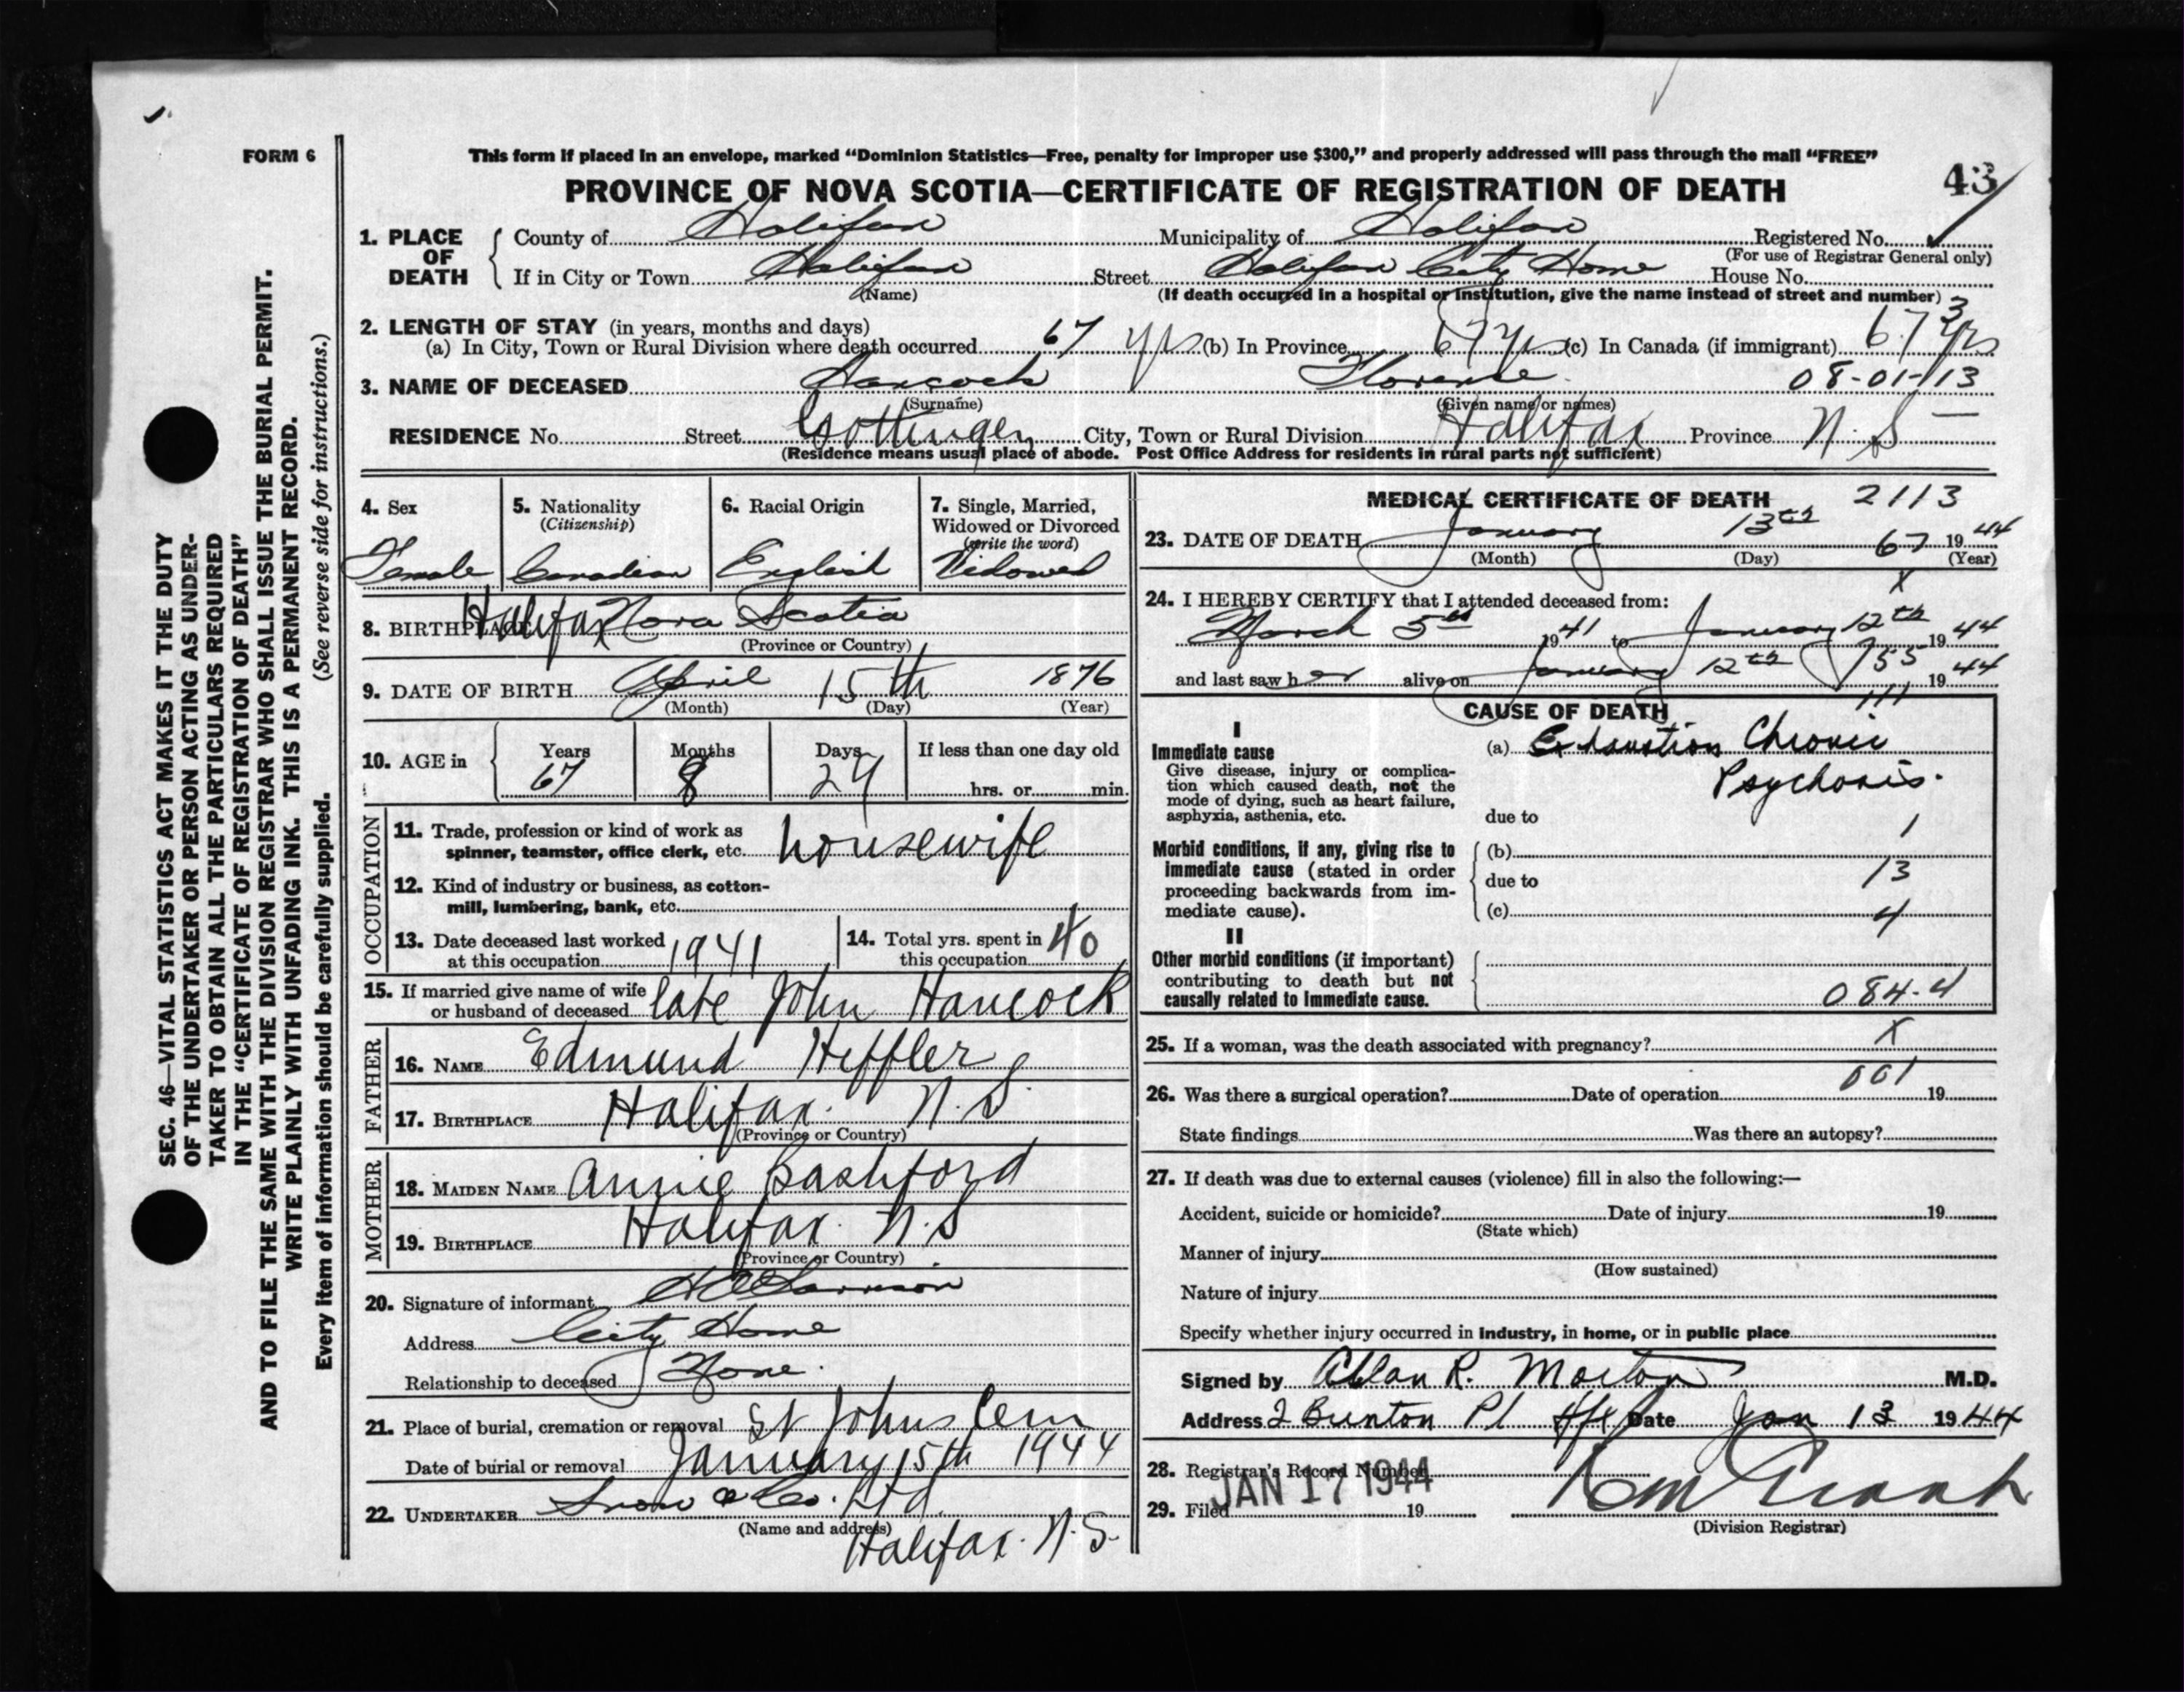 FORM 6
This form if placed in an envelope, marked “Dominion Statistics—Free, penalty for improper use $300,” and properly addressed will pass through the mail “FREE”
PROVINCE OF NOVA SCOTIA—CERTIFICATE OF REGISTRATION OF DEATH
43
1. PLACE OF DEATH
County of Halifax Municipality of Halifax Registered No.
(For use of Registrar General only)
If in City or Town Halifax Street Halifax City Home House No.
(Name) (If death occurred in a hospital or institution, give the name instead of street and number)
3
2. LENGTH OF STAY (in years, months and days)
(a) In City, Town or Rural Division where death occurred 67 yrs (b) In Province 67 yrs (c) In Canada (if immigrant) 67 yrs
3. NAME OF DECEASED Hancock Florence 08-01-113
(Surname) (Given name or names)
RESIDENCE No. Street Gottingen City, Town or Rural Division Halifax Province N.S
(Residence means usual place of abode. Post Office Address for residents in rural parts not sufficient)
4. Sex
Female
5. Nationality
(Citizenship)
Canadian
6. Racial Origin
English
7. Single, Married,
Widowed or Divorced
(write the word)
Widowed
8. BIRTHPLACE Halifax Nova Scotia
(Province or Country)
9. DATE OF BIRTH April 15th 1876
(Month) (Day) (Year)
10. AGE in
Years Months Days If less than one day old
67 8 29 hrs. or min.
OCCUPATION
11. Trade, profession or kind of work as
spinner, teamster, office clerk, etc. housewife
12. Kind of industry or business, as cotton-
mill, lumbering, bank, etc.
13. Date deceased last worked
at this occupation 1941
14. Total yrs. spent in
this occupation 40
15. If married give name of wife
or husband of deceased late John Hancock
FATHER
16. NAME Edmund Heffler
17. BIRTHPLACE Halifax. N.S.
(Province or Country)
MOTHER
18. MAIDEN NAME Annie Bashford
19. BIRTHPLACE Halifax. N.S
(Province or Country)
20. Signature of informant
Address City Home
Relationship to deceased None.
21. Place of burial, cremation or removal St Johns Cem
Date of burial or removal January 15th 1944
22. UNDERTAKER Snow & Co. Ltd.
(Name and address)
Halifax. N.S.
MEDICAL CERTIFICATE OF DEATH 2113
23. DATE OF DEATH January 13th 67 1944
(Month) (Day) (Year)
X
24. I HEREBY CERTIFY that I attended deceased from:
March 5th 1941 to January 12th 1944
and last saw her alive on January 12th 55 1944
111
CAUSE OF DEATH
I
Immediate cause
Give disease, injury or complica-
tion which caused death, not the
mode of dying, such as heart failure,
asphyxia, asthenia, etc.
(a) Exhaustion Chronic
Psychosis.
due to
1
Morbid conditions, if any, giving rise to
immediate cause (stated in order
proceeding backwards from im-
mediate cause).
(b)
due to 13
(c) 4
II
Other morbid conditions (if important)
contributing to death but not
causally related to immediate cause.
084-4
25. If a woman, was the death associated with pregnancy? X
001
26. Was there a surgical operation? Date of operation 19
State findings Was there an autopsy?
27. If death was due to external causes (violence) fill in also the following:—
Accident, suicide or homicide? Date of injury 19
(State which)
Manner of injury
(How sustained)
Nature of injury
Specify whether injury occurred in industry, in home, or in public place
Signed by Allan R. Morton M.D.
Address 2 Brenton Pl Hfx Date Jan 13 1944
28. Registrar's Record Number
JAN 17 1944
29. Filed 19
(Division Registrar)
SEC. 46—VITAL STATISTICS ACT MAKES IT THE DUTY
OF THE UNDERTAKER OR PERSON ACTING AS UNDER-
TAKER TO OBTAIN ALL THE PARTICULARS REQUIRED
IN THE “CERTIFICATE OF REGISTRATION OF DEATH”
AND TO FILE THE SAME WITH THE DIVISION REGISTRAR WHO SHALL ISSUE THE BURIAL PERMIT.
WRITE PLAINLY WITH UNFADING INK. THIS IS A PERMANENT RECORD.
Every item of information should be carefully supplied. (See reverse side for instructions.)